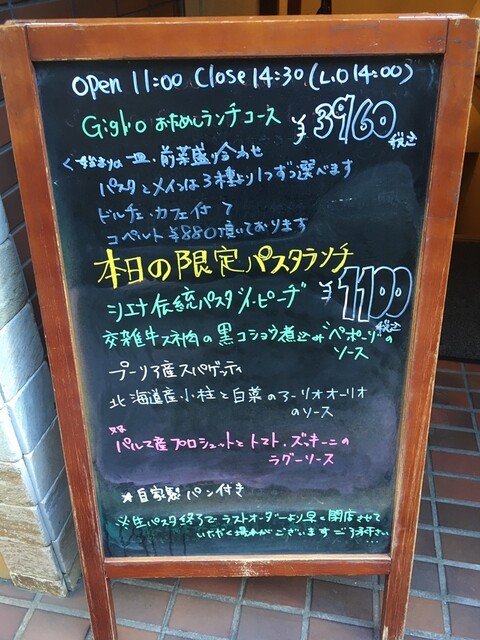 Open 11:00 Close 14:30 (L.O 14:00)
Giglio おためしランチコース ¥3960 税込
始まりの一皿・前菜盛り合わせ
パスタとメインは3種より1つずつ選べます
ドルチェ・カフェ付て
コペルト¥880頂いております
本日の限定パスタランチ
¥1100 税込
シエナ伝統パスタ"ピーチ"
交雑牛スネ肉の黒コショウ煮込み"ペポーゾ"の
ソース
プーリア産スパゲッティ
北海道産小柱と白菜のアーリオオーリオ
のソース
パルマ産プロシュットとトマト、ズッキーニの
ラグーソース
★自家製パン付き
※生パスタ終了でラストオーダーより早く閉店させて
いただく場合がございます ご了承下さい...